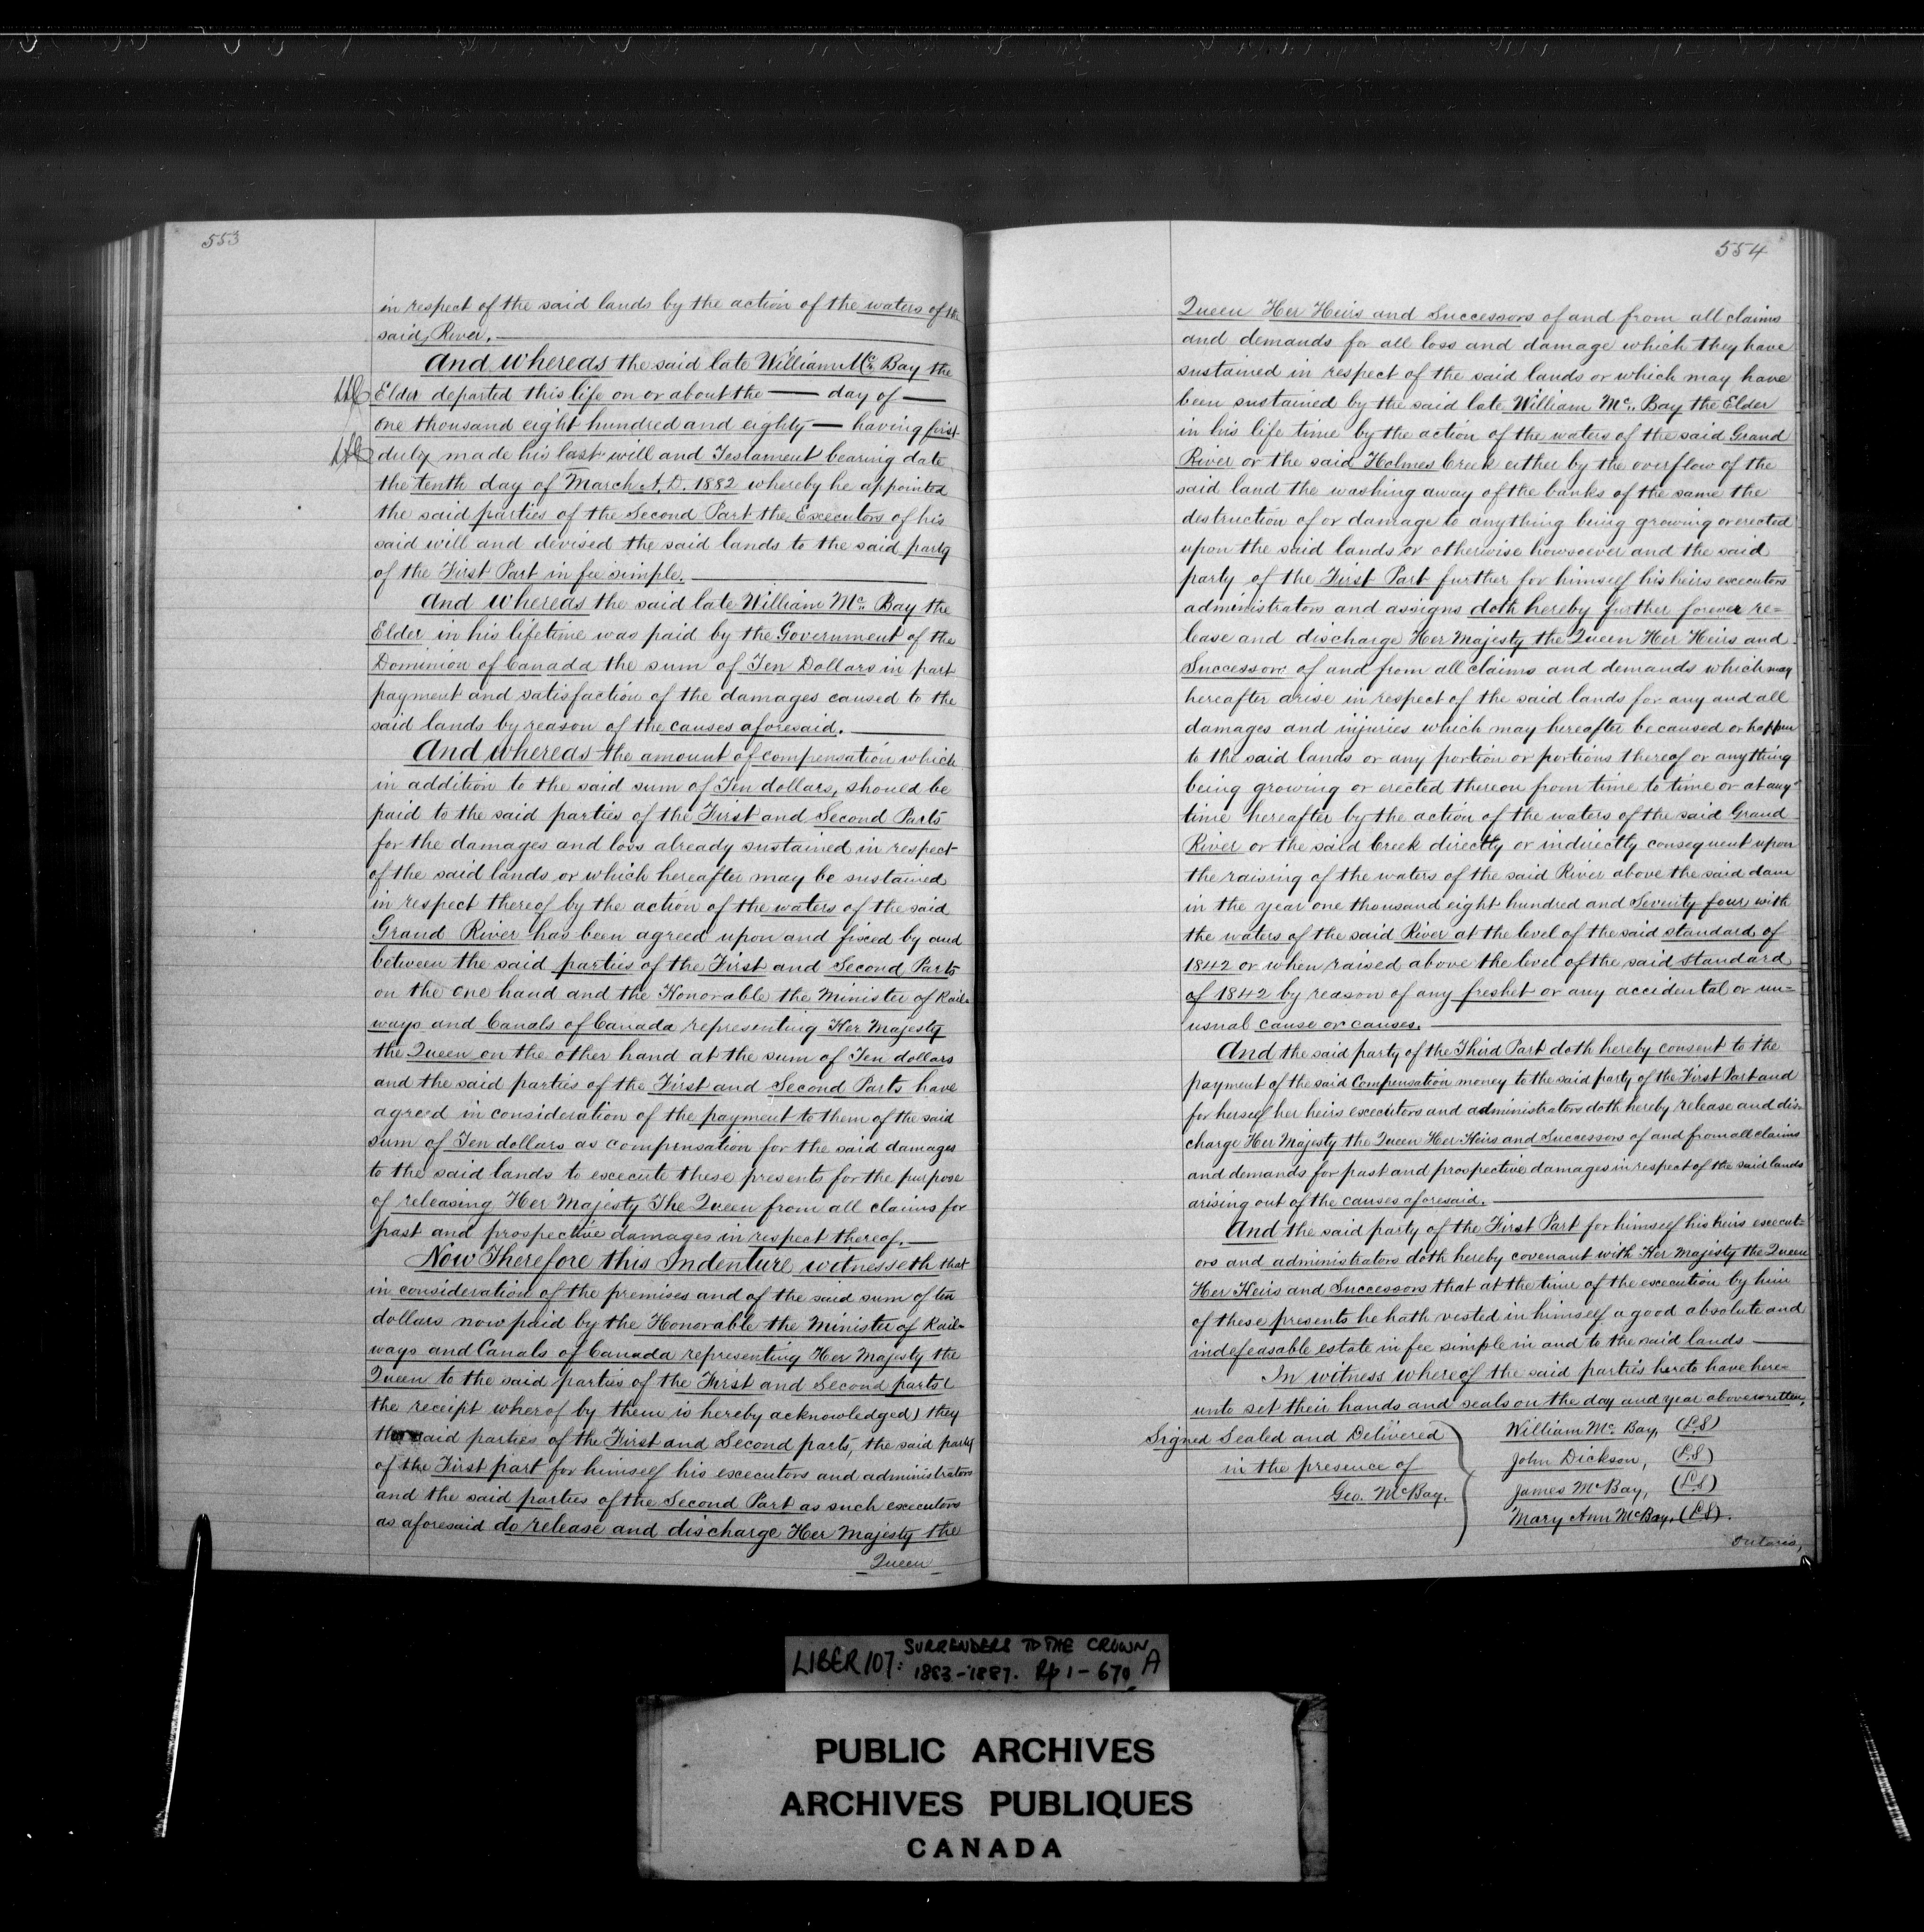 553
in respect of the said lands by the action of the waters of the
said River.
And Whereas the said late William Mc Bay the
Elder departed this life on or about the — day of —
one thousand eight hundred and eighty — having first
duly made his last will and Testament bearing date
the tenth day of March A.D. 1882 whereby he appointed
the said parties of the Second Part the Executors of his
said will and devised the said lands to the said party
of the First Part in fee simple.
And Whereas the said late William Mc Bay the
Elder in his lifetime was paid by the Government of the
Dominion of Canada the sum of Ten Dollars in part
payment and satisfaction of the damages caused to the
said lands by reason of the causes aforesaid.
And whereas the amount of compensation which
in addition to the said sum of Ten dollars, should be
paid to the said parties of the First and Second Parts
for the damages and loss already sustained in respect
of the said lands or which hereafter may be sustained
in respect thereof by the action of the waters of the said
Grand River has been agreed upon and fixed by and
between the said parties of the First and Second Parts
on the one hand and the Honorable the Minister of Rail-
ways and Canals of Canada representing Her Majesty
the Queen on the other hand at the sum of Ten dollars
and the said parties of the First and Second Parts have
agreed in consideration of the payment to them of the said
sum of Ten dollars as compensation for the said damages
to the said lands to execute these presents for the purpose
of releasing Her Majesty The Queen from all claims for
past and prospective damages in respect thereof.
Now Therefore this Indenture witnesseth that
in consideration of the premises and of the said sum of ten
dollars now paid by the Honorable the Minister of Rail-
ways and Canals of Canada representing Her Majesty the
Queen to the said parties of the First and Second parts (
the receipt wherof by them is hereby acknowledged) they
the said parties of the First and Second parts, the said party
of the First part for himself his executors and administrators
and the said parties of the Second Part as such executors
as aforesaid do release and discharge Her Majesty the
Queen
554
Queen Her Heirs and Successors of and from all claims
and demands for all loss and damage which they have
sustained in respect of the said lands or which may have
been sustained by the said late William Mc Bay the Elder
in his life time by the action of the waters of the said Grand
River or the said Holmes Creek either by the overflow of the
said land the washing away of the banks of the same the
destruction of or damage to anything being growing or erected
upon the said lands or otherwise howsoever and the said
party of the First Part further for himself his heirs executors
administrators and assigns doth hereby further forever re=
lease and discharge Her Majesty the Queen Her Heirs and
Successors of and from all claims and demands which may
hereafter arise in respect of the said lands for any and all
damages and injuries which may hereafter be caused or happen
to the said lands or any portion or portions thereof or anything
being growing or erected thereon from time to time or at any
time hereafter by the action of the waters of the said Grand
River or the said Creek directly or indirectly consequent upon
the raising of the waters of the said River above the said dam
in the year one thousand eight hundred and Seventy four with
the waters of the said River at the level of the said standard of
1842 or when raised above the level of the said standard
of 1842 by reason of any freshet or any accidental or un=
usual cause or causes.
And the said party of the Third Part doth hereby consent to the
payment of the said Compensation money to the said party of the First Part and
for herself her heirs executors and administrators doth hereby release and dis-
charge Her Majesty the Queen Her Heirs and Successors of and from all claims
and demands for past and prospective damages in respect of the said lands
arising out of the causes aforesaid.
And the said party of the First Part for himself his heirs execut-
ors and administrators doth hereby covenant with Her Majesty the Queen
Her Heirs and Successors that at the time of the execution by him
of these presents he hath vested in himself a good absolute and
indefeasable estate in fee simple in and to the said lands
In witness whereof the said parties hereto have here=
unto set their hands and seals on the day and year above written,
Signed Sealed and Delivered
in the presence of
Geo. McBay.
William Mc Bay, (L.S)
John Dickson, (L.S)
James McBay, (L.S)
Mary Ann McBay. (L.S).
Ontario,
LIBER 107: SURRENDERS TO THE CROWN
1883-1887. Pp 1-670 A
PUBLIC ARCHIVES
ARCHIVES PUBLIQUES
CANADA